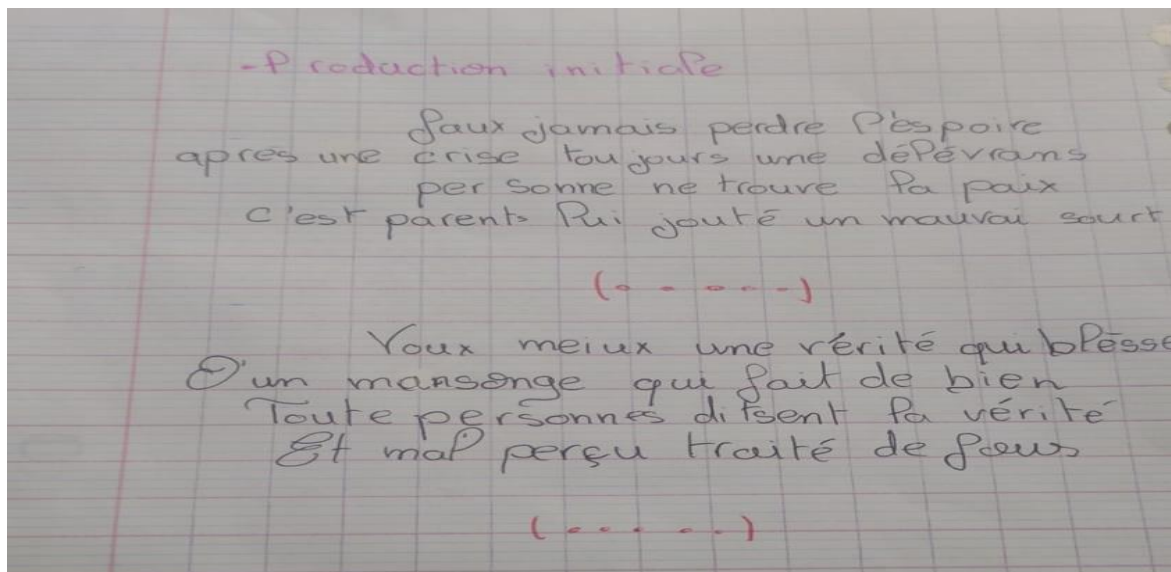 -Production initiale
faux jamais perdre l'èspoire
apres une crise toujours une délévrans
personne ne trouve la paix
c'est parents lui jouté un mauvai sourt
(.....)
Voux meiux une vérité qui blésse
Q'un mansonge qui fait de bien
Toute personnes ditsent la vérité
Et mal perçu traité de fous
(.....)